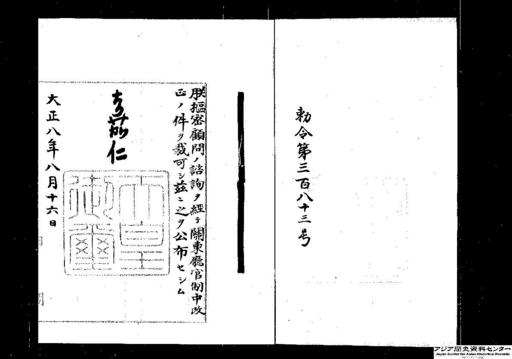 勅令第三百八十三号
朕樞密顧問ノ諮詢ヲ經テ關東廳官制中改
正ノ件ヲ裁可シ茲ニ之ヲ公布セシム
嘉仁
天皇
御璽
大正八年八月十六日
アジア歴史資料センター
Japan Center for Asian Historical Records